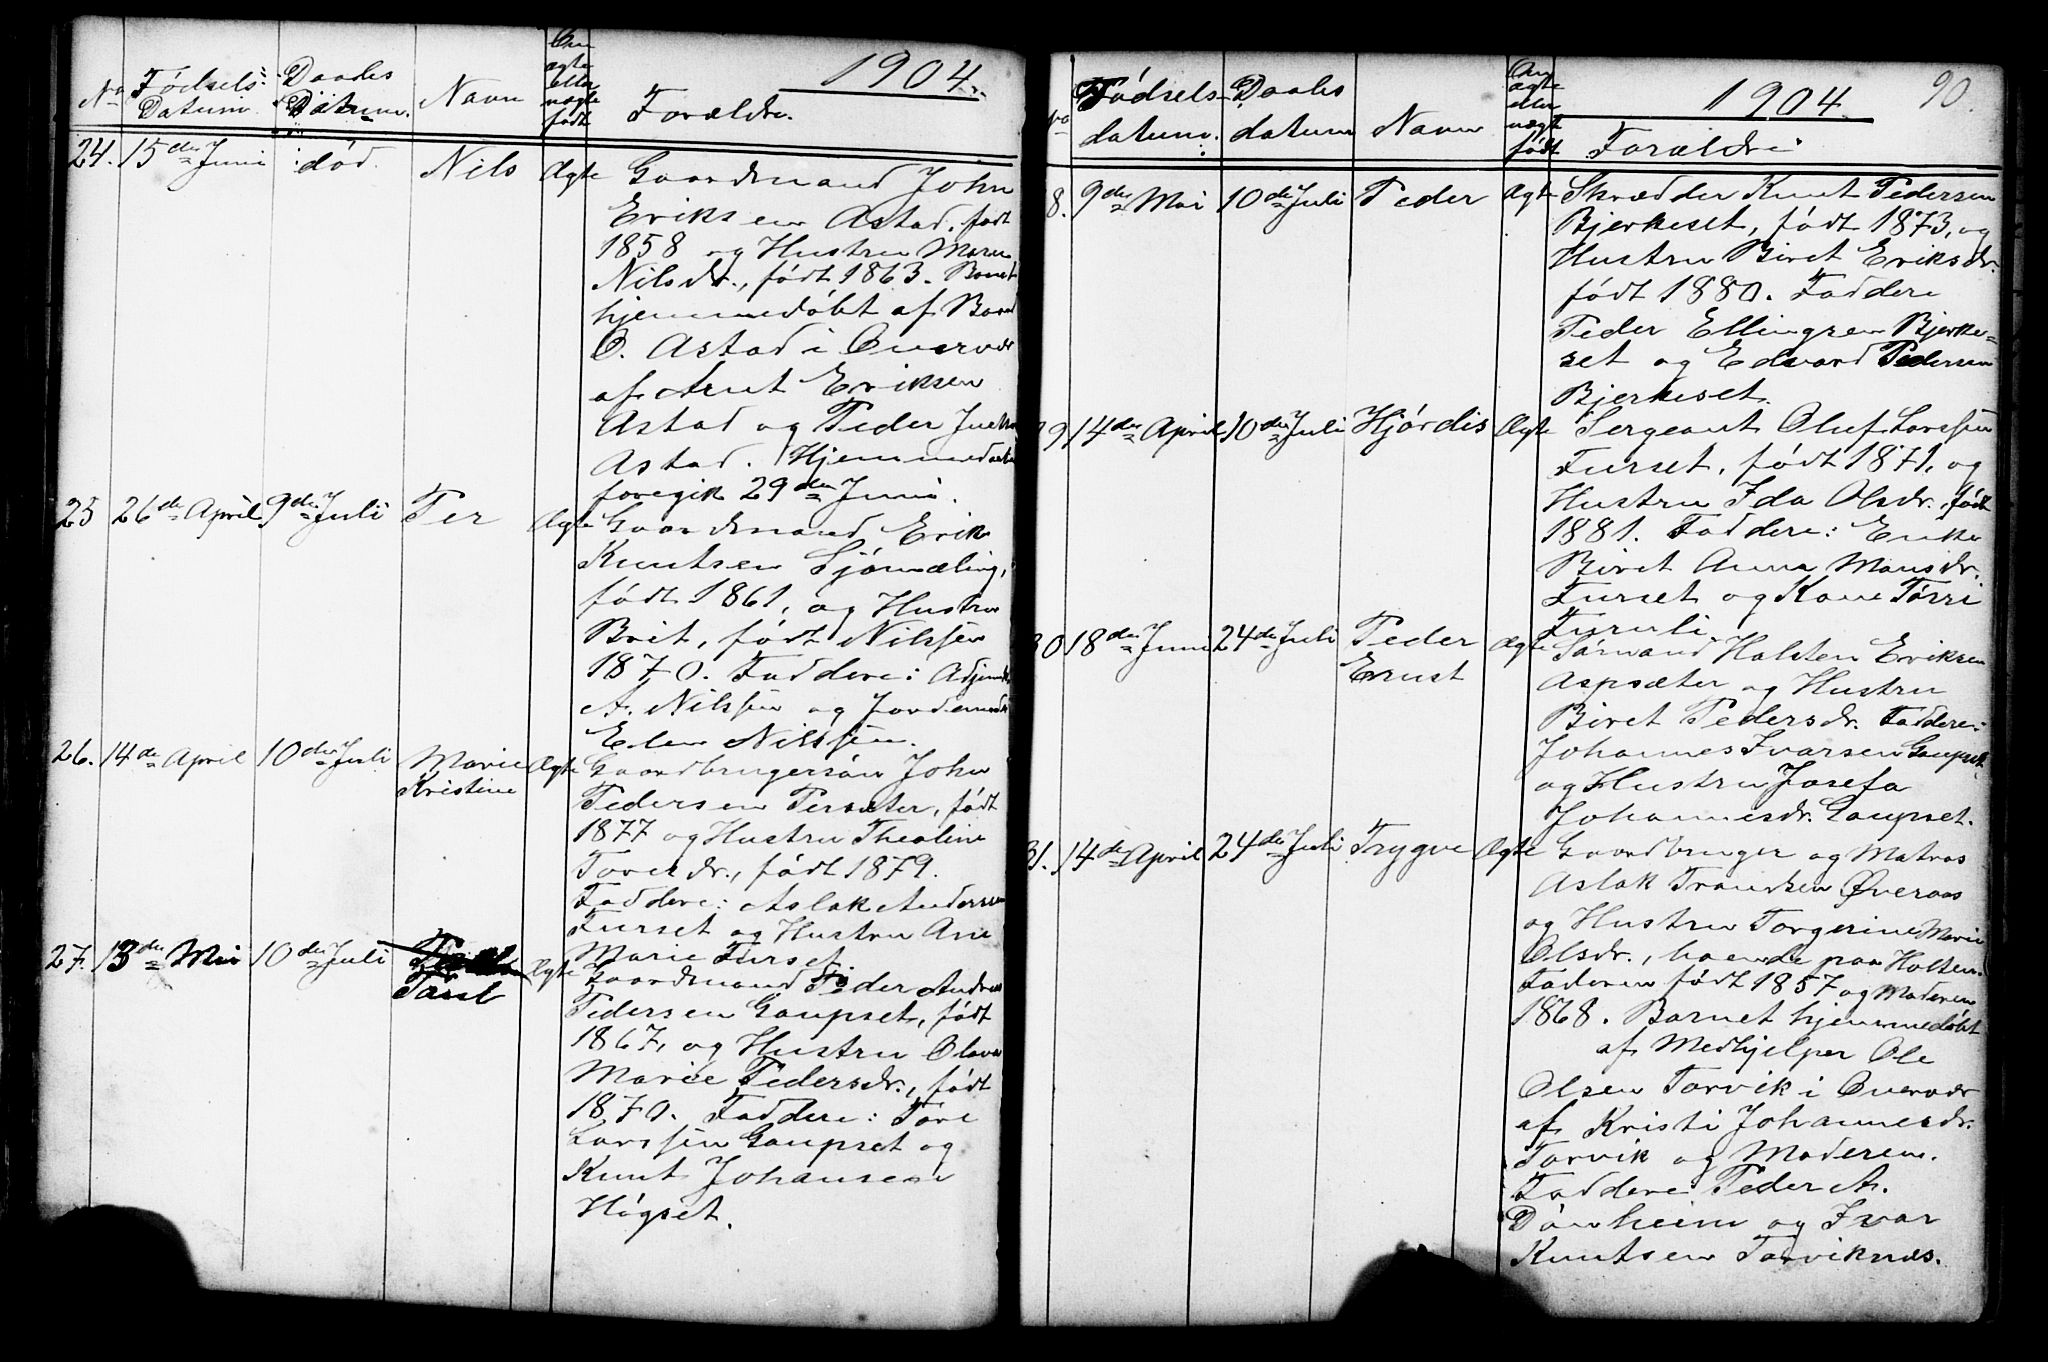 1904.
No Fødsels Datum Daabs Datum. Navn Om ægte eller uægte født Forældre.
24. 15de Juni død. Nils Ægte Gaardmand John
Eriksen Astad, født
1858 og Hustru Maren
Nilsdr., født 1863. Barnet
hjemmedøbt af Baard
O. Astad i Overvær
af Arnt Eriksen
Astad og Peder
Astad. Hjemmedaaben
foregik 29de Juni.
25 26de April 9de Juli Per Ægte Gaardmand Erik
Knutsen Sjømæling,
født 1861, og Hustru
Brit, født Nilssen
1870. Faddere: Adjunkt
A. Nilssen og Jordemoder
Elen Nilssen.
26. 14de April 10de Juli Marie Ægte Gaardbrugersøn John
Kristine
Pedersen Persæter, født
1877 og Hustru Thealine
Toresdr., født 1879.
Faddere: Aslak Anderssen
Furset og Hustru Ane
Marie Furset
27. 13de Mai 10de Juli Ægte Gaardmand Peder Andreas
Pedersen Gaupset, født
1867, og Hustru Olava
Marie Pedersdr., født
1870. Faddere: Tore
Larssen Gaupset og
Knut Johansen
Høgset.
1904. 90.
No Fødsels- datum. Daabs datum Navn Om ægte eller uægte født Forældre
8. 9de Mai 10de Juli Peder Ægte Skrædder Knut Pedersen
Bjerkeset, født 1873, og
Hustru Biret Eriksdr.
født 1880. Faddere
Peder Ellingsen Bjerke-
set og Edvard Pedersen
Bjerkeset.
29 14de April 10de Juli Hjørdis Ægte Sergeant Oluf Larssen
Furset, født 1871, og
Hustru Ida Olsdr. født
1881. Faddere: Enke
Biret Anna Monsdr.
Furset og Kone Torri
Furuli.
30 18de Juni 24de Juli Peder Ægte Sørmand Halsten Eriksen
Ernst
Aspsæter og Hustru
Biret Pedersdr. Faddere:
Johannes Ivarsen Gaupset
og Hustru Josefa
Johannesdr. Gaupset.
31. 14de April 24de Juli Trygve Ægte Gaardbruger og Matros
Aslak Trondsen Øveraas
og Hustru Torgerine Marie
Olsdr., boende paa Holten.
Faderen født 1857 og Moderen
1868. Barnet hjemmedøbt
af Medhjelper Ole
Olsen Torvik i Overvær
af Kristi Johannesdr.
Torvik og Moderen.
Faddere Peder A.
Dönheim og Ivar
Knutsen Torviknes.